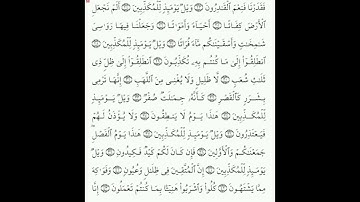 فَقَدَرْنَا فَنِعْمَ ٱلْقَٰدِرُونَ ۝ وَيْلٌ يَوْمَئِذٍ لِّلْمُكَذِّبِينَ ۝ أَلَمْ نَجْعَلِ
ٱلْأَرْضَ كِفَاتًا ۝ أَحْيَآءً وَأَمْوَٰتًا ۝ وَجَعَلْنَا فِيهَا رَوَٰسِىَ
شَٰمِخَٰتٍ وَأَسْقَيْنَٰكُم مَّآءً فُرَاتًا ۝ وَيْلٌ يَوْمَئِذٍ لِّلْمُكَذِّبِينَ
۝ ٱنطَلِقُوٓا۟ إِلَىٰ مَا كُنتُم بِهِۦ تُكَذِّبُونَ ۝ ٱنطَلِقُوٓا۟ إِلَىٰ ظِلٍّ ذِى
ثَلَٰثِ شُعَبٍ ۝ لَّا ظَلِيلٍ وَلَا يُغْنِى مِنَ ٱللَّهَبِ ۝ إِنَّهَا تَرْمِى
بِشَرَرٍ كَٱلْقَصْرِ ۝ كَأَنَّهُۥ جِمَٰلَتٌ صُفْرٌ ۝ وَيْلٌ يَوْمَئِذٍ
لِّلْمُكَذِّبِينَ ۝ هَٰذَا يَوْمُ لَا يَنطِقُونَ ۝ وَلَا يُؤْذَنُ لَهُمْ
فَيَعْتَذِرُونَ ۝ وَيْلٌ يَوْمَئِذٍ لِّلْمُكَذِّبِينَ ۝ هَٰذَا يَوْمُ ٱلْفَصْلِ
جَمَعْنَٰكُمْ وَٱلْأَوَّلِينَ ۝ فَإِن كَانَ لَكُمْ كَيْدٌ فَكِيدُونِ ۝ وَيْلٌ
يَوْمَئِذٍ لِّلْمُكَذِّبِينَ ۝ إِنَّ ٱلْمُتَّقِينَ فِى ظِلَٰلٍ وَعُيُونٍ ۝ وَفَوَٰكِهَ
مِمَّا يَشْتَهُونَ ۝ كُلُوا۟ وَٱشْرَبُوا۟ هَنِيٓـًٔۢا بِمَا كُنتُمْ تَعْمَلُونَ ۝ إِنَّا